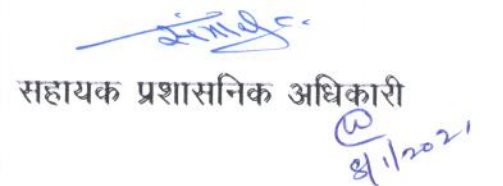 सहायक प्रशासनिक अधिकारी
8/1/2021